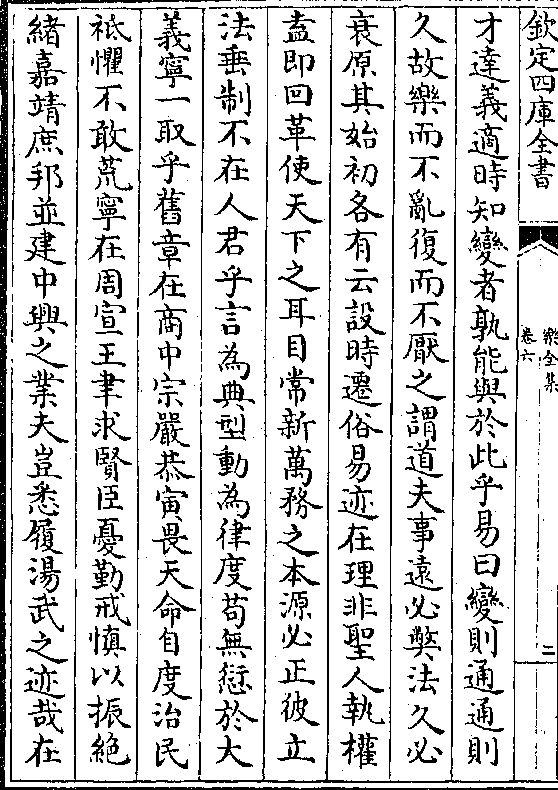 欽定四庫全書
樂全集
卷六
二
才達義適時知變者孰能與於此乎易曰變則通通則
久故樂而不亂復而不厭之謂道夫事遠必獘法久必
衰原其始初各有云設時遷俗易迹在理非聖人執權
盍即回革使天下之耳目常新萬務之本源必正彼立
法垂制不在人君乎言為典型動為律度苟無愆於大
義寧一取乎舊章在商中宗嚴恭寅畏天命自度治民
祗懼不敢荒寧在周宣王聿求賢臣憂勤戒慎以振絶
緒嘉靖庶邦並建中興之業夫豈悉履湯武之迹哉在